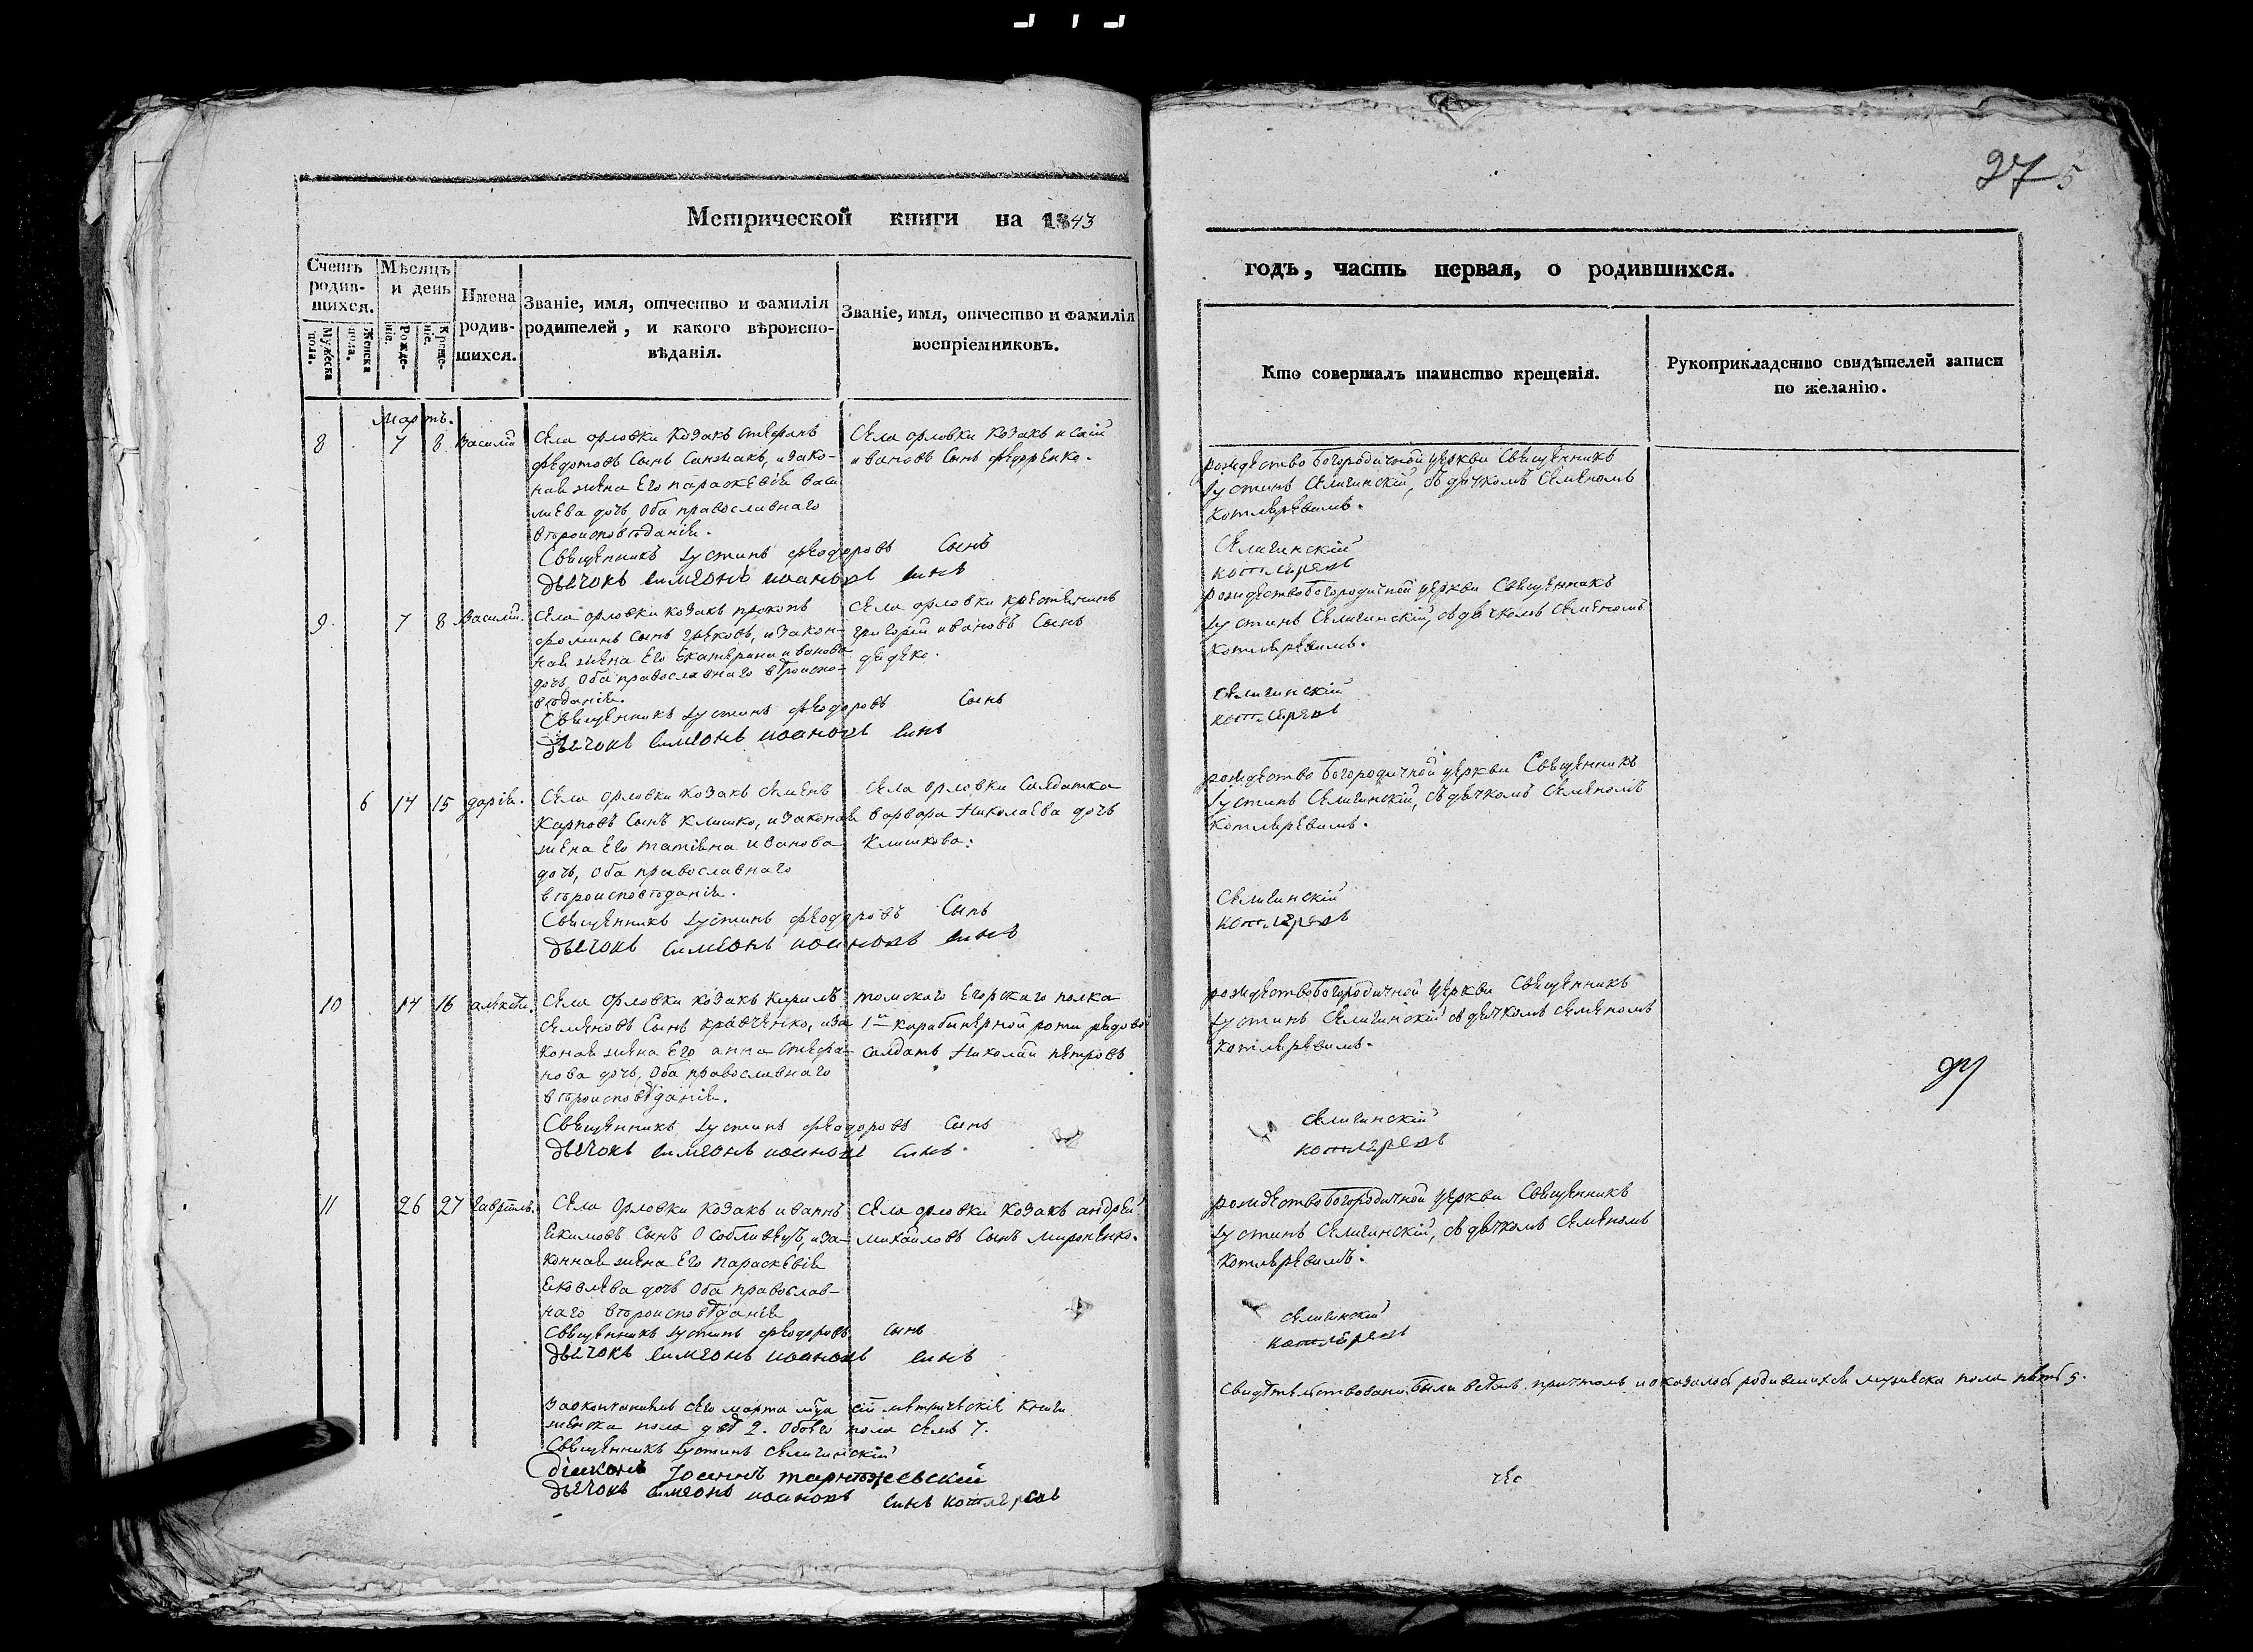 27 5
Метрической книги на 1843
годъ, часть первая, о родившихся.
Счетъ родив- шихся.
Мужеска пола.
Женска пола.
Мѣсяцъ и день
Рожде- ніе.
Креще- ніе.
Имена родив- шихся.
Званіе, имя, отчество и фамилія
родителей, и какого вѣроиспо-
вѣданія.
Званіе, имя, отчество и фамилія
воспріемниковъ.
Кто совершалъ таинство крещенія.
Рукоприкладство свидѣтелей записи
по желанію.
Мартъ.
8 7 8 Василій
Села орловки козакъ стефанъ
федотовъ сынъ Санжакъ, изако-
ная жена его параскевія васи
лиева дочь, оба православнаго
вѣроисповѣданія.
Священникъ Іустинъ феодоровъ Сынъ
дьячокъ симеонъ иоановъ синъ
Села орловки козакъ
ивановъ сынъ
рождество богородичной церкви Священникъ
Іустинъ Селигинскій, съ дячкомъ Семеномъ
Котляревимъ.
Селигинскій
котляревъ
9. 7 8 Василій.
Села орловки козакъ прокопъ
фоминъ сынъ грековъ, изакон-
ная жена его екатерина иванова
дочь, оба православнаго вѣроиспо-
вѣданія.
Священникъ Іустинъ феодоровъ Сынъ
дьячокъ симеонъ иоановъ синъ
Села орловки крестянинъ
григорій ивановъ сынъ
дядеко.
рождество богородичной церкви Священникъ
Іустинъ Селигинскій, съ дячкомъ Семеномъ
Котляревимъ.
Селигинскій
котляревъ
6 14 15 дарія.
Села орловки козакъ семенъ
Карповъ сынъ Клишко, изаконая
жена его татіяна иванова
дочь, оба православнаго
вѣроисповѣданія.
Священникъ Іустинъ феодоровъ Сынъ
дьячокъ симеонъ иоановъ синъ
Села орловки салдатка
варвара Николаева дочь
Клишкова.
рождество богородичной церкви Священникъ
Іустинъ Селигинскій, съ дячкомъ Семеномъ
Котляревимъ.
Селигинскій
котляревъ
10 14 16 алексѣй.
Села орловки козакъ кирилъ
семеновъ сынъ кравченко, иза
коная жена его анна стефа-
нова дочь, оба православнаго
вѣроисповѣданія.
Священникъ Іустинъ феодоровъ Сынъ
дьячокъ симеонъ иоановъ синъ.
томского егорского полка
1й карабинерной роти рядовой
салдатъ Николай петровъ
рождество богородичной церкви Священникъ
Іустинъ Селигинскій съ дячкомъ семеномъ
Котляревимъ.
Селигинскій
котляревъ
11 26 27 гаврілъ.
Села орловки козакъ иванъ
екимовъ сынъ Особливецъ, иза-
конная жена его параскевія
яковлева дочь оба православ-
наго вѣроисповѣданія
Священникъ Іустинъ феодоровъ сынъ
дьячокъ симеонъ иоановъ синъ
Села орловки козакъ андрей
михайловъ сынъ мироненко.
рождество богородичной церкви Священникъ
Іустинъ Селигинскій, съ дячкомъ Семеномъ
Котляревимъ.
селигинскій
котляревъ
Заокончаниемъ сего марта мца сїи метрическіе книги
женска пола 2. обоего пола семъ 7.
Священникъ Іустинъ Селигинскій
Діаконъ Іоаннъ
дьячокъ симеонъ иоановъ синъ котляревъ
Свидѣтелствовани были всѣмъ причтомъ и оказалось родившихся мужеска пола пять 5.